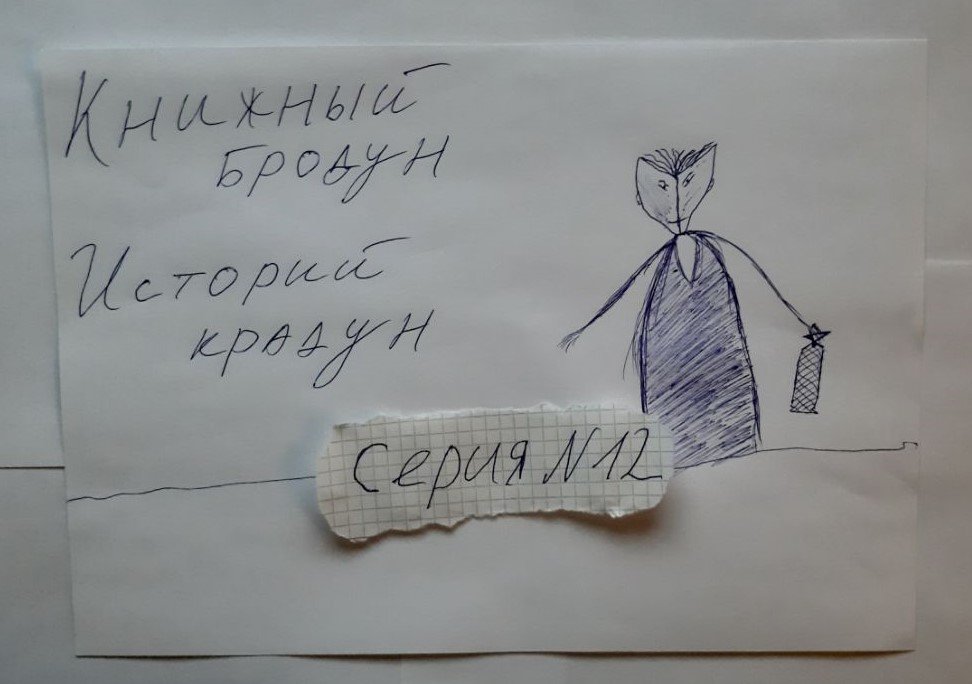 Книжный
бродун
Историй
крадун
Серия N12